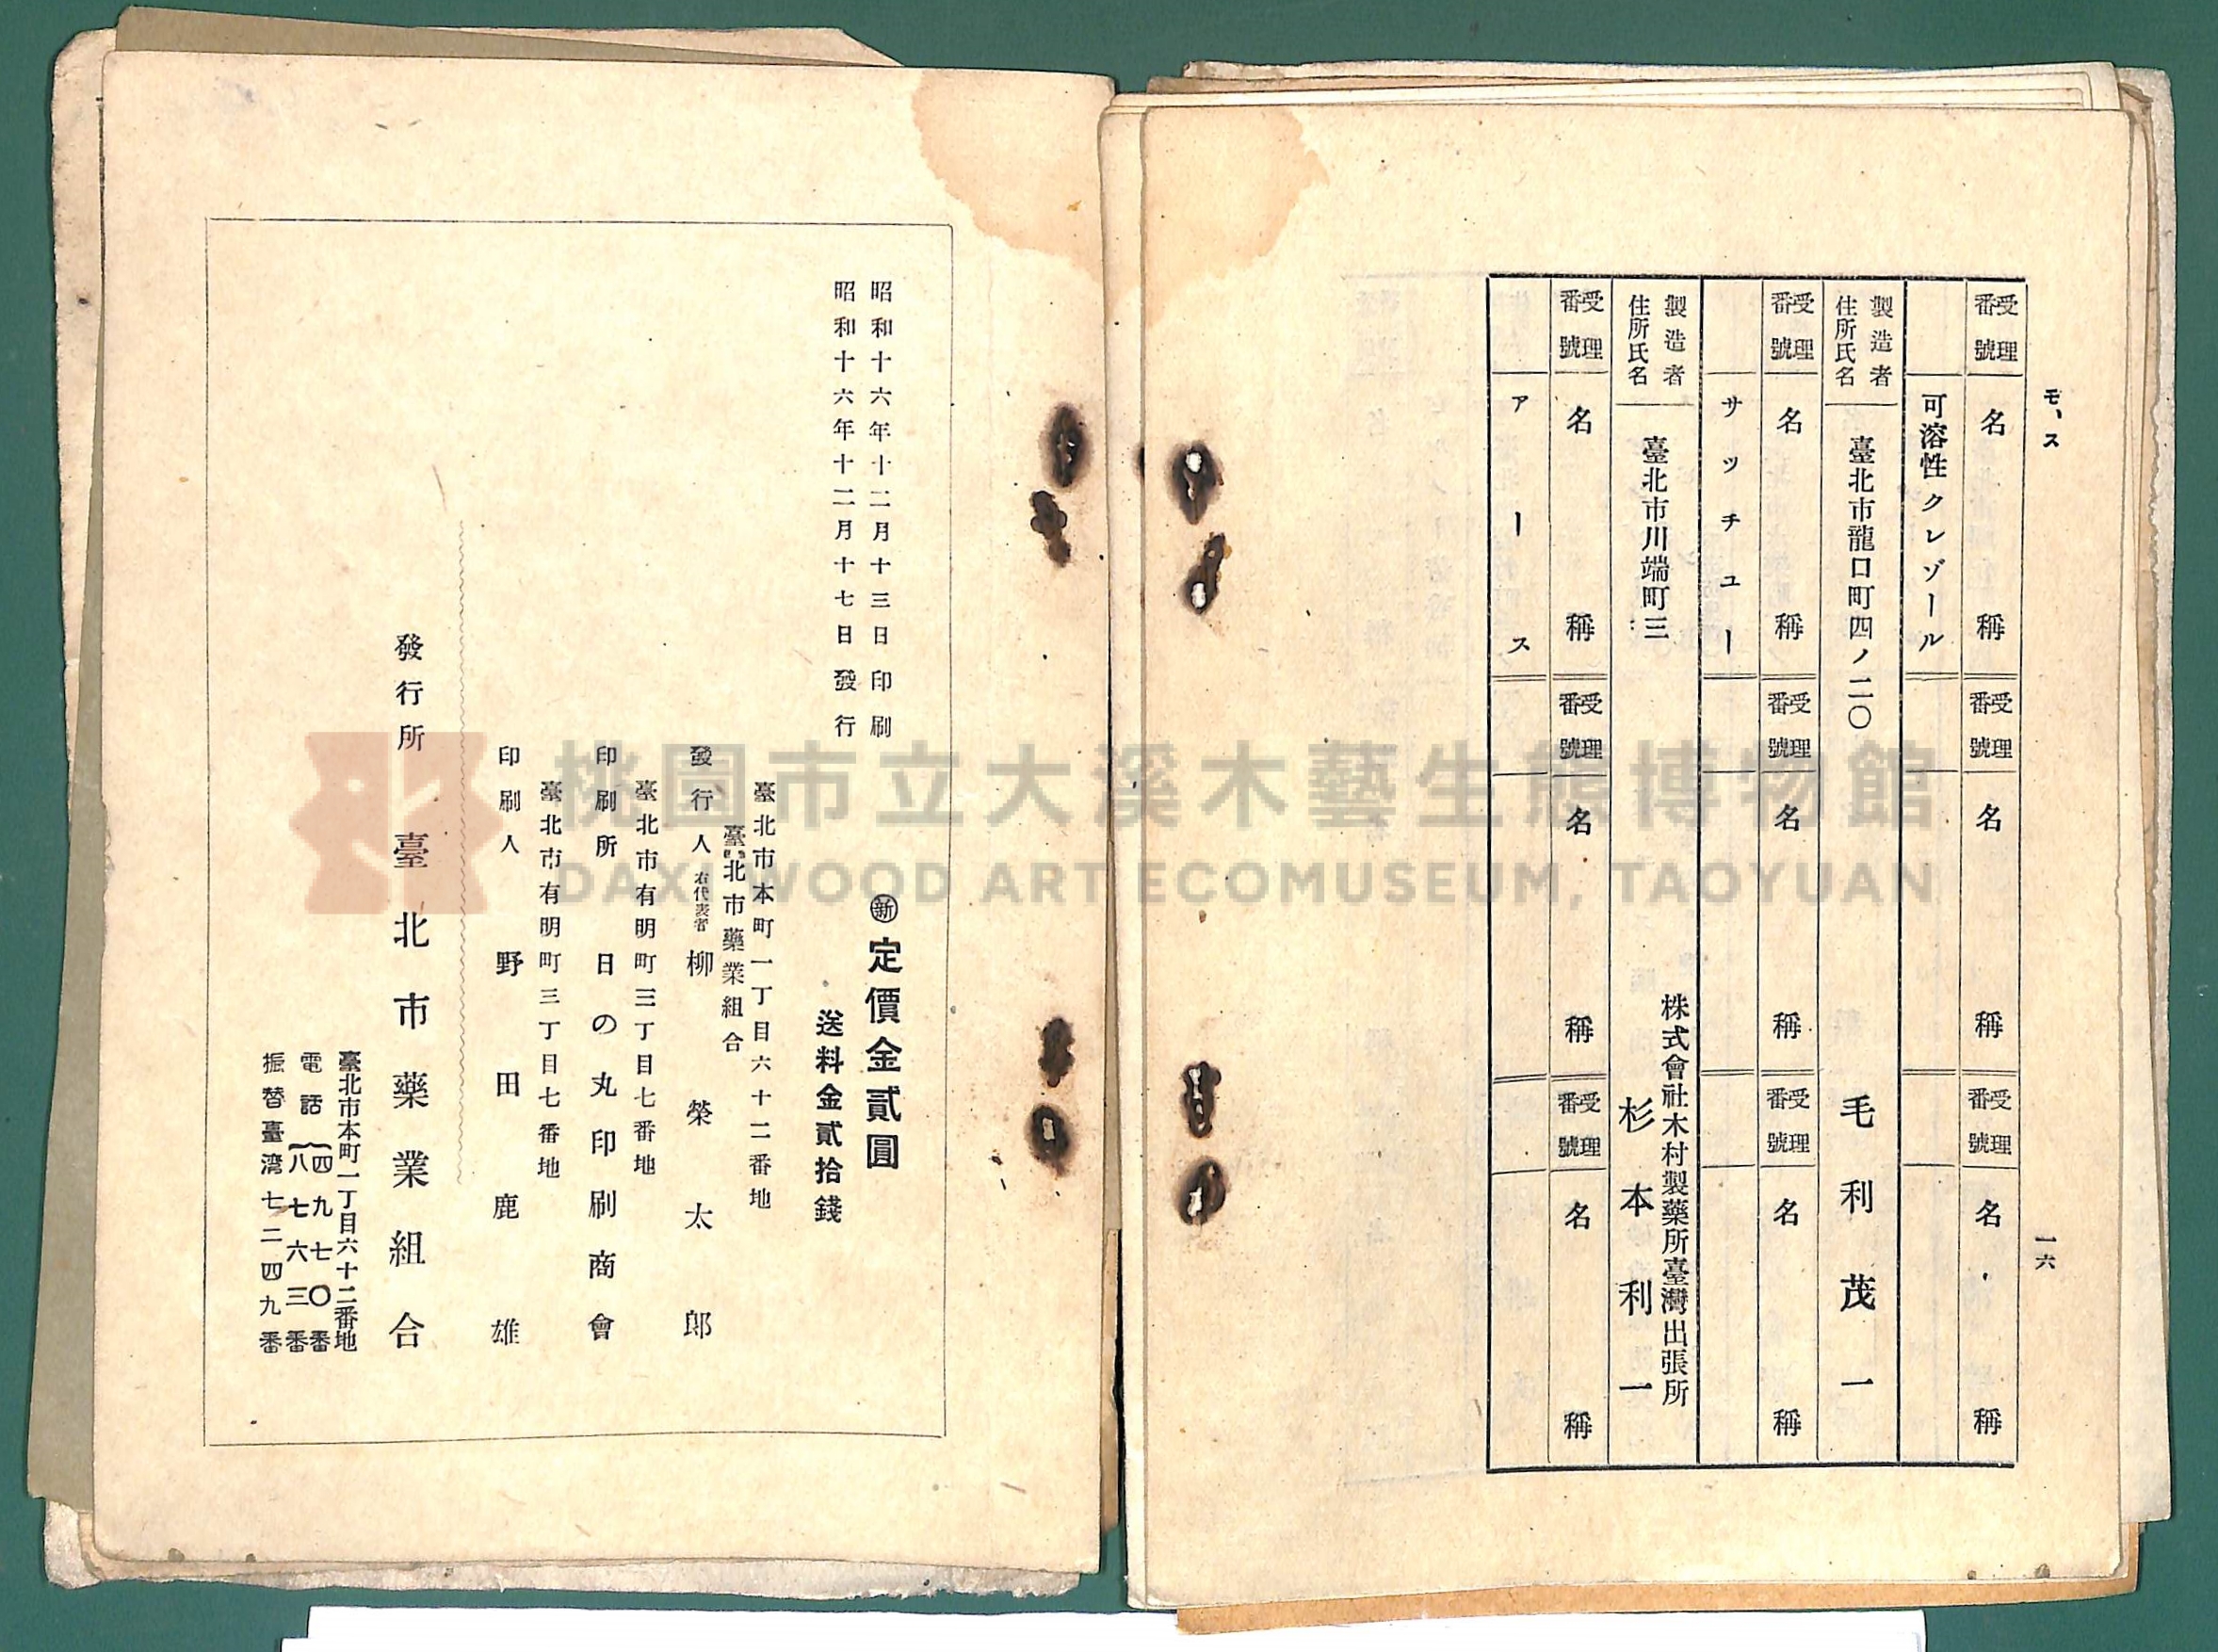 モ、ス
一六
受理番號 名稱 受理番號 名稱 受理番號 名稱
可溶性クレゾール
製造者住所氏名 臺北市龍口町四ノ二〇 毛利茂一
受理番號 名稱 受理番號 名稱 受理番號 名稱
サッチユー
製造者住所氏名 臺北市川端町三 株式會社木村製藥所臺灣出張所
杉本利一
受理番號 名稱 受理番號 名稱 受理番號 名稱
アース
昭和十六年十二月十三日印刷
昭和十六年十二月十七日發行
㊟定價金貳圓
送料金貳拾錢
臺北市本町一丁目六十二番地
臺北市藥業組合
發行人 右代表者 柳榮太郎
臺北市有明町三丁目七番地
印刷所 日の丸印刷商會
臺北市有明町三丁目七番地
印刷人 野田鹿雄
發行所 臺北市藥業組合
臺北市本町一丁目六十二番地
電話 四九七〇番
八七六三番
振替臺湾七二四九番
桃園市立大溪木藝生態博物館
DAXI WOOD ART ECOMUSEUM, TAOYUAN